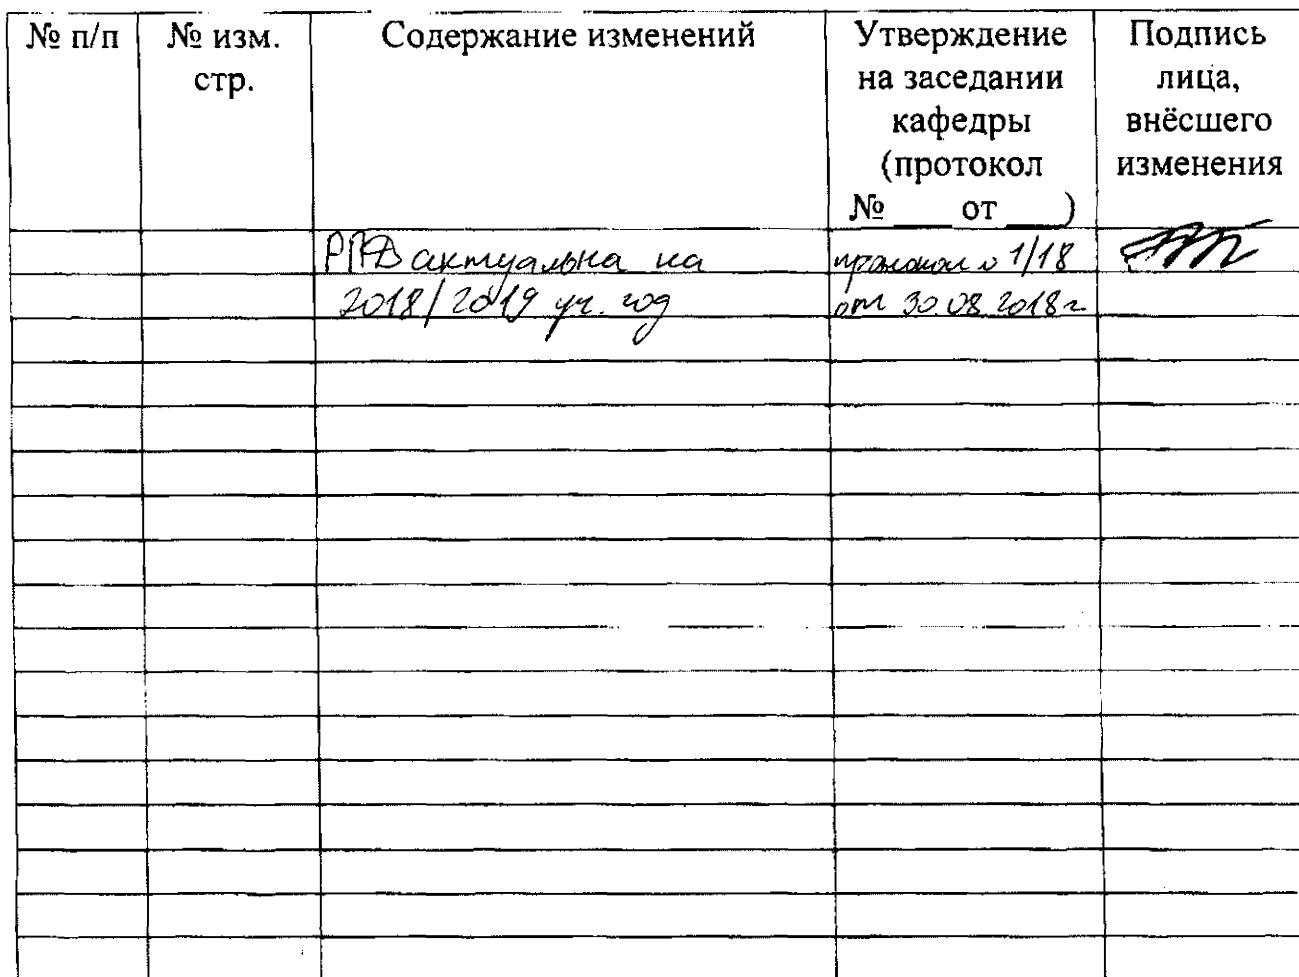 № п/п
№ изм.
стр.
Содержание изменений
Утверждение
на заседании
кафедры
(протокол
№ ___ от ___)
Подпись
лица,
внёсшего
изменения
РПД актуальна на
2018/2019 уч. год
протокол 1/18
от 30.08.2018 г